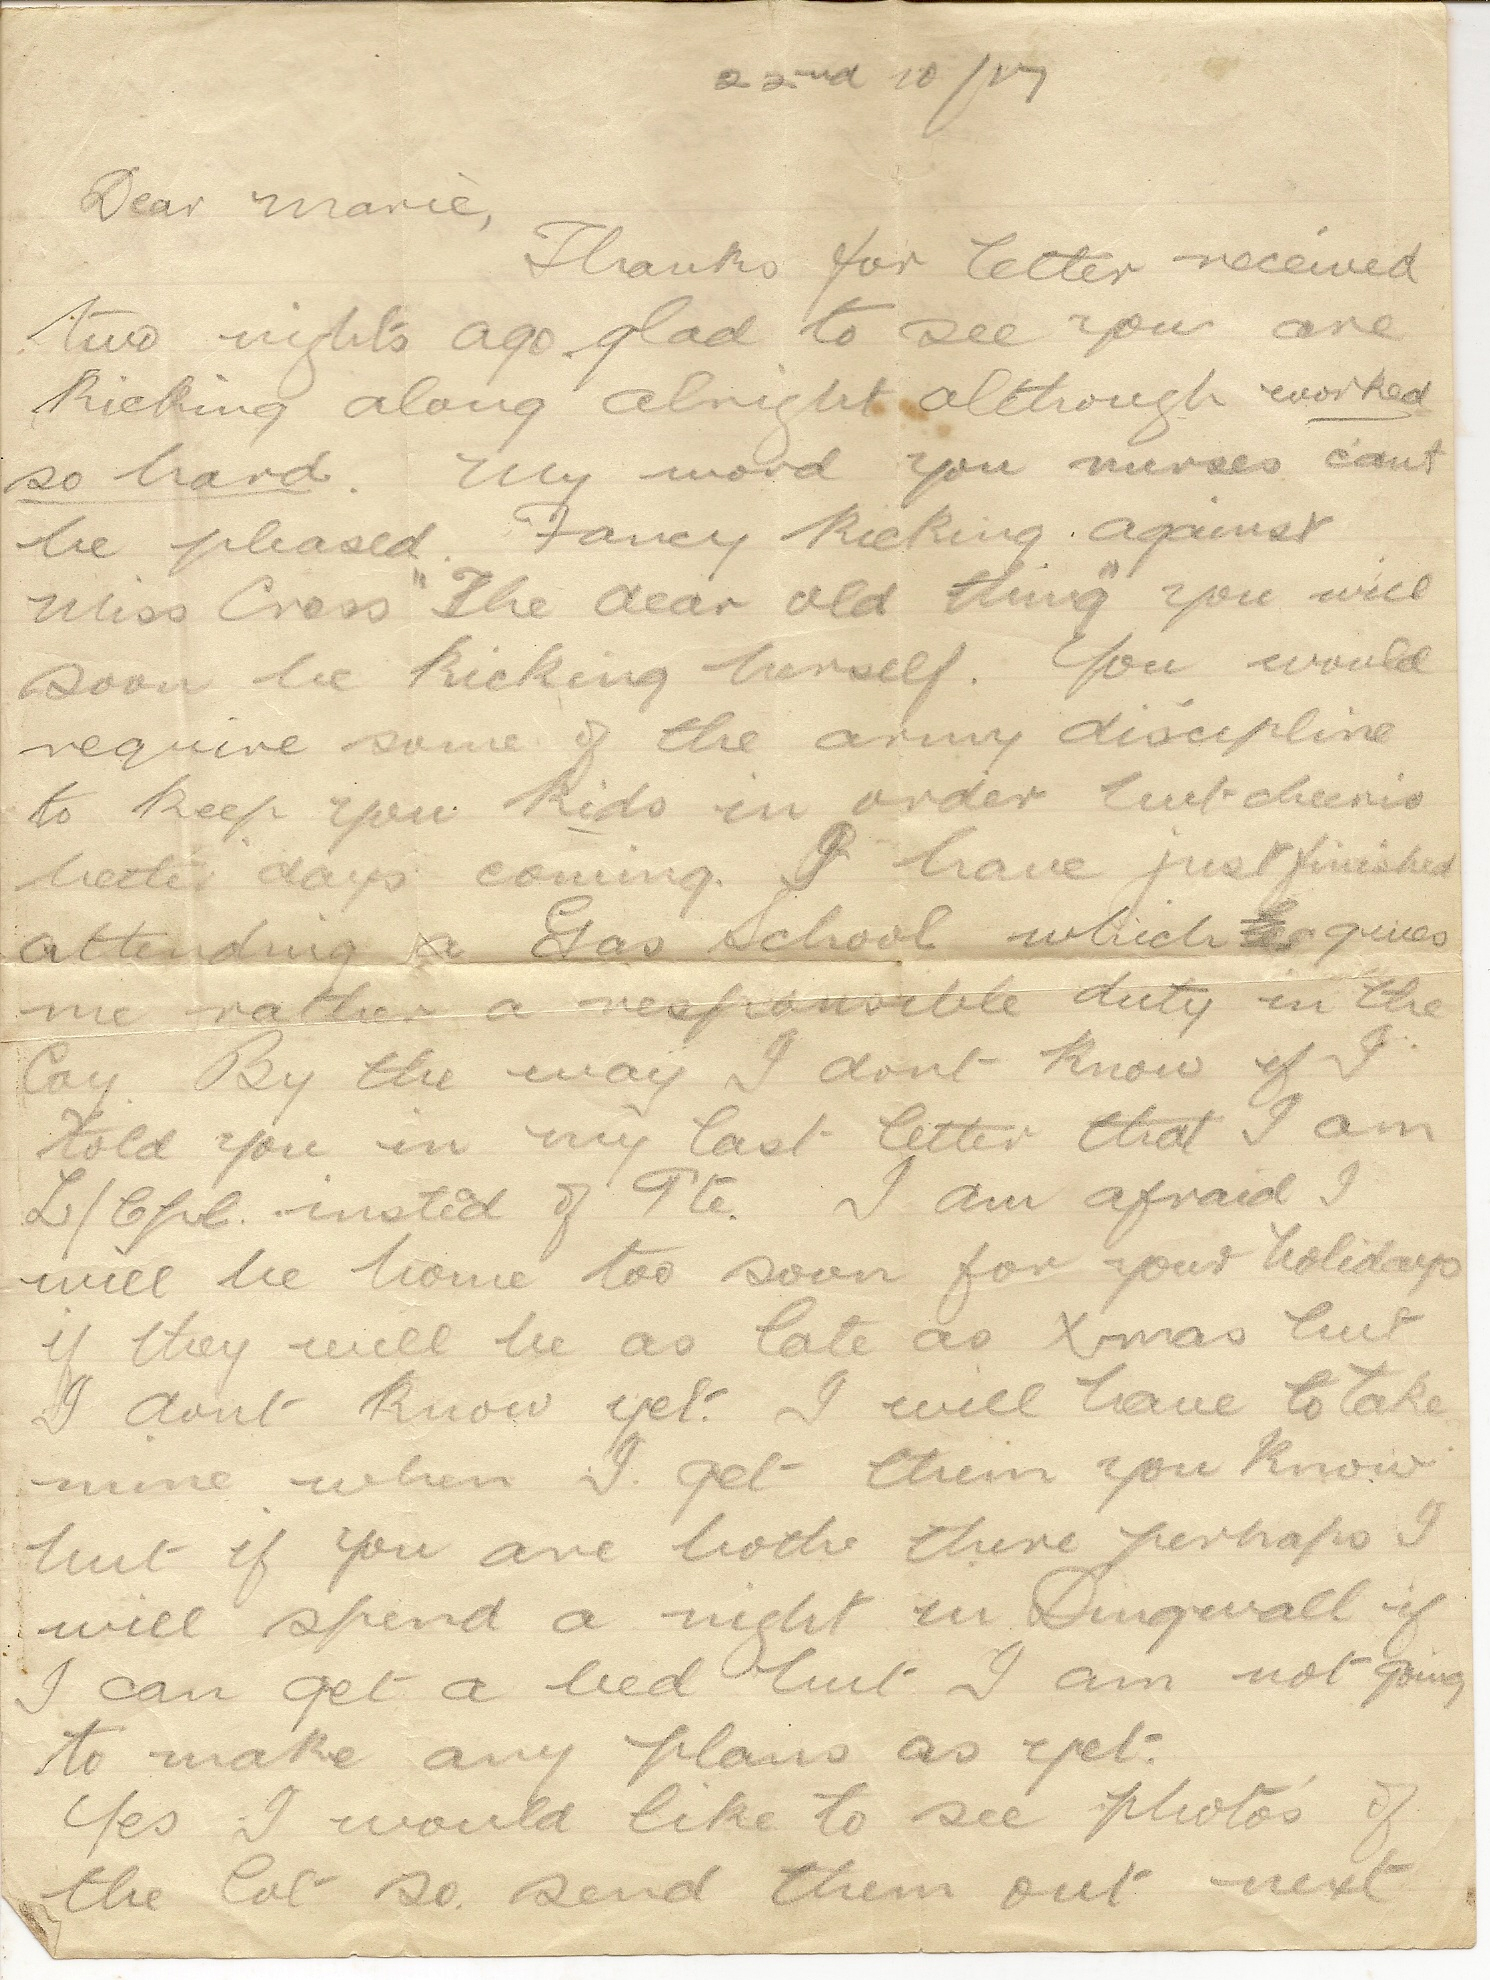 22nd 10/17
Dear Marie,
Thanks for letter received
two nights ago glad to see you are
kicking along alright although worked
so hard. My word you nurses cant
be pleased. Fancy kicking against
Miss Cross "The dear old thing" you will
soon be kicking herself. You would
require some of the army discipline
to keep you kids in order but cheerio
better days coming. I have just finished
attending a Gas School which gives
me rather a responsible duty in the
Coy. By the way I dont know if I
told you in my last letter that I am
L/Cpl. insted of Pte. I am afraid I
will be home too soon for your holidays
if they will be as late as Xmas but
I dont know yet. I will have to take
mine when I get them you know
but if you are bothe there perhaps I
will spend a night in Dingwall if
I can get a bed but I am not going
to make any plans as yet.
Yes I would like to see photo's of
the lot so send them out next